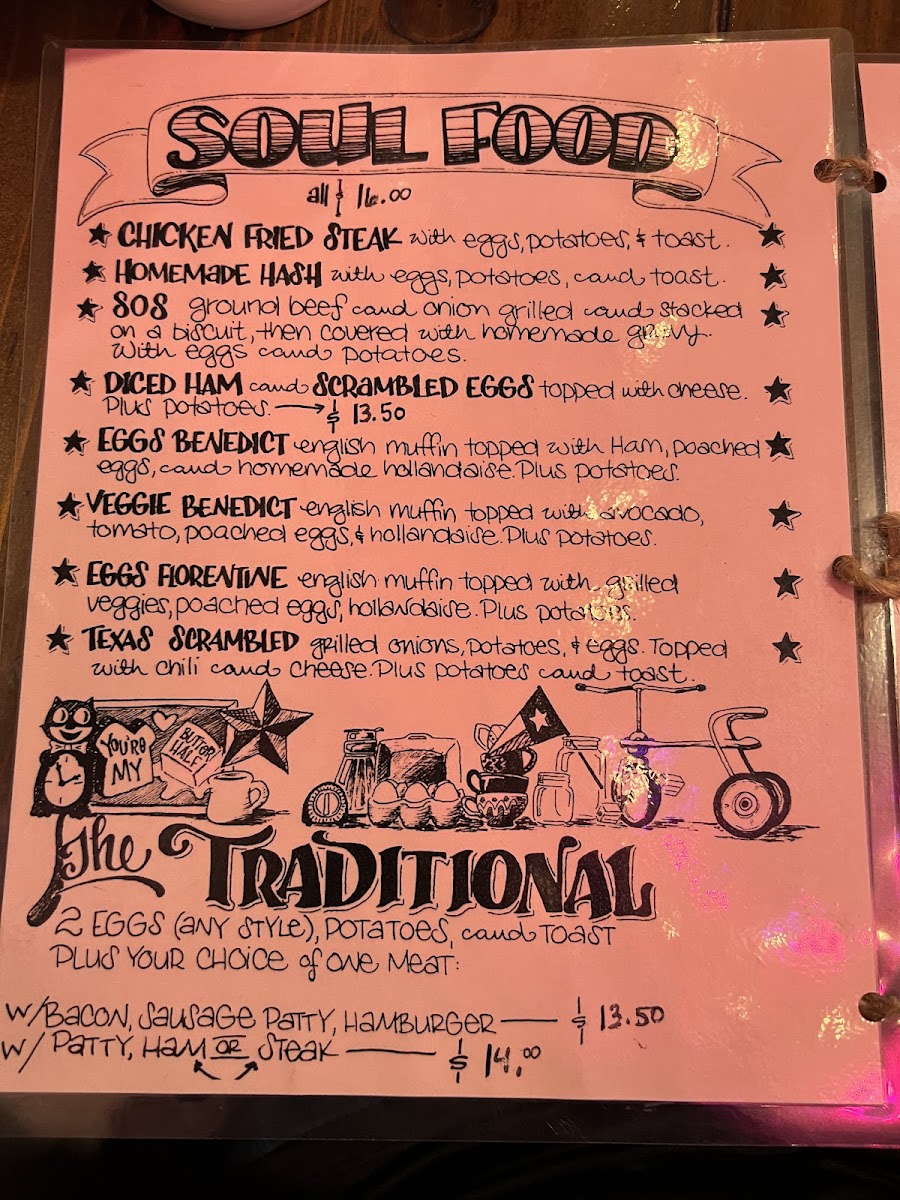 SOUL FOOD
all $ 16.00
★ CHICKEN FRIED STEAK with eggs, potatoes, & toast. ★
★ HOMEMADE HASH with eggs, potatoes, and toast. ★
★ SOS ground beef and onion grilled and stacked ★
on a biscuit, then covered with homemade gravy.
With eggs and potatoes.
★ DICED HAM and SCRAMBLED EGGS topped with cheese. ★
Plus potatoes. → $ 13.50
★ EGGS BENEDICT english muffin topped with Ham, poached ★
eggs, and homemade hollandaise. Plus potatoes.
★ VEGGIE BENEDICT english muffin topped with avocado, ★
tomato, poached eggs, & hollandaise. Plus potatoes.
★ EGGS FLORENTINE english muffin topped with grilled ★
veggies, poached eggs, hollandaise. Plus potatoes.
★ TEXAS SCRAMBLED grilled onions, potatoes, & eggs. Topped ★
with chili and cheese. Plus potatoes and toast.
YOU'RE
MY
BUTTER
HALF
The TRADITIONAL
2 EGGS (ANY STYLE), POTATOES, and TOAST
PLUS YOUR CHOICE of ONE MEAT:
W/BACON, SAUSAGE PATTY, HAMBURGER — $ 13.50
W/ PATTY, HAM OR STEAK — $ 14.00